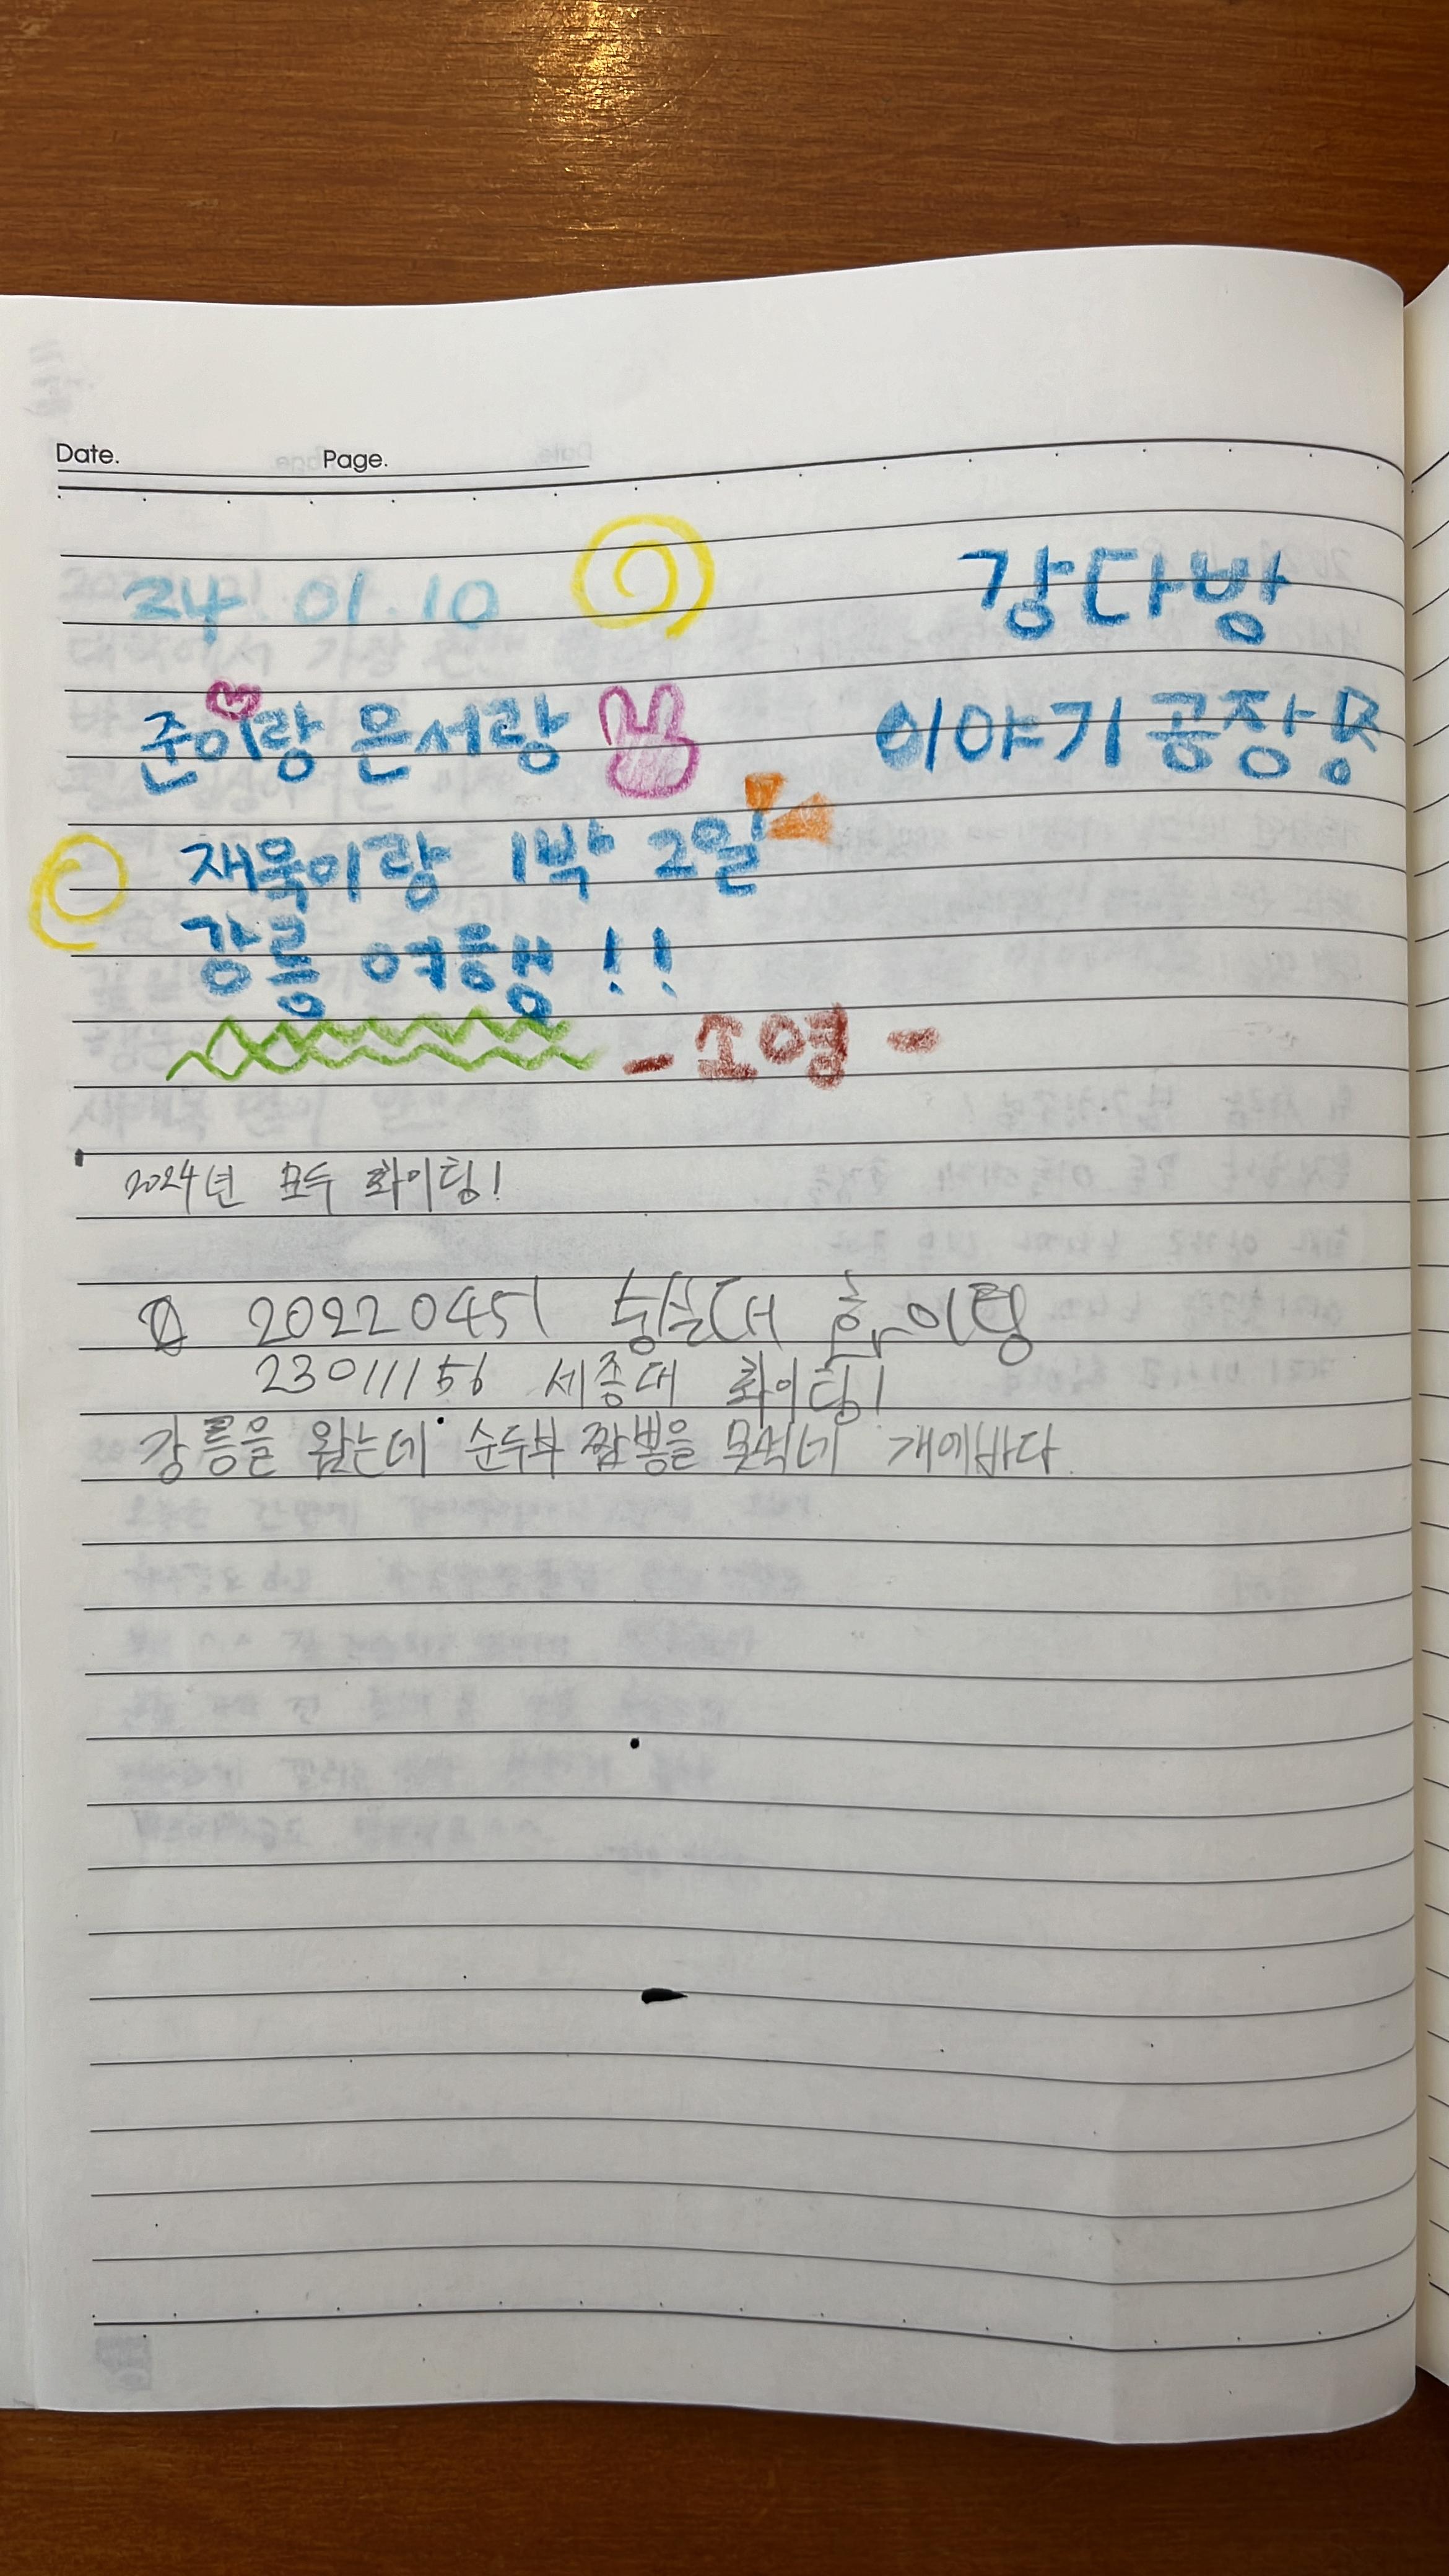 Date. Page.
24. 01. 10
강다방
이야기공장
준이랑 은서랑
재욱이랑 1박 2일
강릉 여행!!
- 소영 -
2024년 모두 화이팅!
20220451 숭실대 화이팅
23011156 세종대 화이팅!
강릉을 왔는데 순두부 짬뽕을 못먹네 개에바다